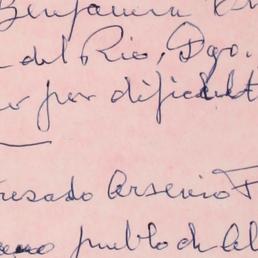 Benjamin
del Rio, Dgo.
por dificult
resado Arsenio F
pueblo de